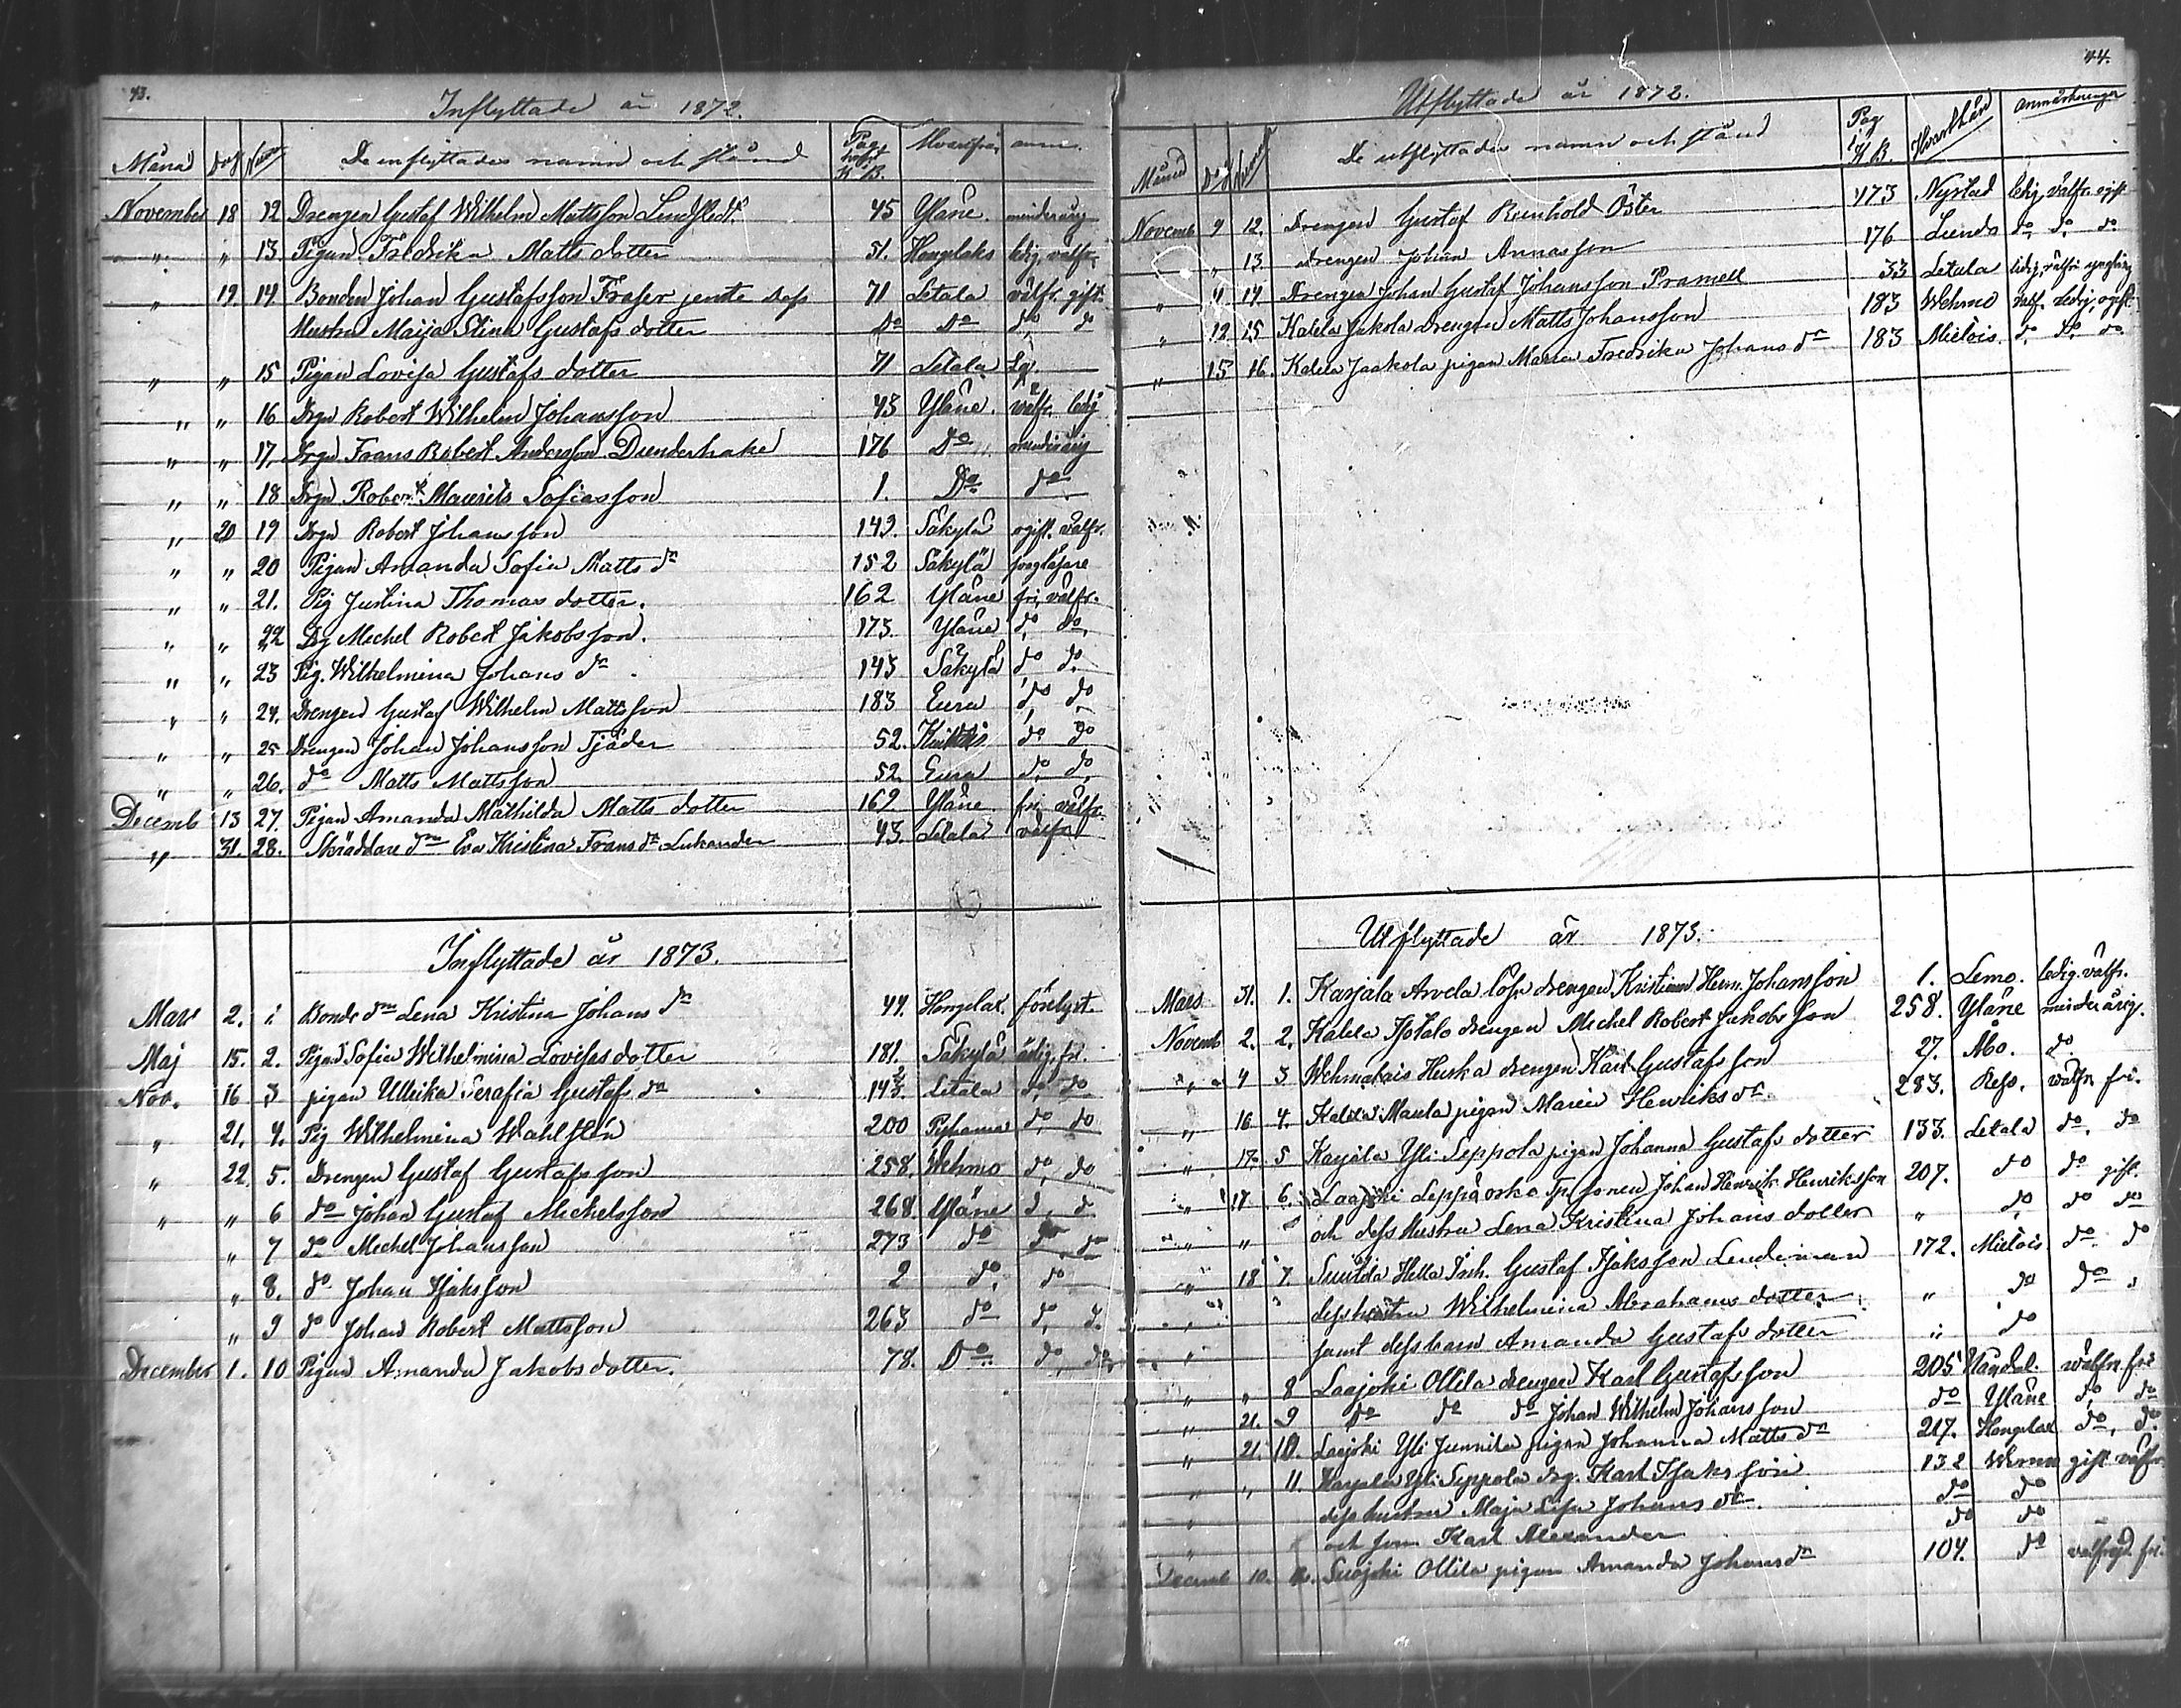 43.
Inflyttade år 1872.
Månad Dag Num De inflyttades namn och stånd Pag K B. Hvarifrån anm.
November 18 12 Drengen Gustaf Wilhelm Mattsson Lindstedt. 45 Yläne. minderårig
" " 13 Pigan Fredrika Matts dotter 51. Honglaks ledig, välfr.
" 19 14 Bonden Johan Gustafsson Fraser jemte dess 71 Letala välfr. gift.
Hustru Maija Stina Gustafs dotter Do Do do do
" " 15 Pigan Lovisa Gustafs dotter 71 Letala
" " 16 Drgn Robert Wilhelm Johansson 43 Yläne. välfr. ledig
" " 17. Drgn Frans Robert Andersson Dunderhake 176 Do minderårig
" " 18 Drgn Robert Maurits Sofiasson 1. Do do
" 20 19 Drgn Robert Johansson 149. Säkylä ogift. välfr.
" " 20 Pigan Amanda Sofia Matts dr 152 Säkylä
" " 21. Pig Justina Thomas dotter. 162 Yläne fri, välfr.
" " 22 Dg Mechel Robert Jakobsson. 173. Yläne do do
" " 23 Pig. Wilhelmina Johans dr 143 Säkylä do do
" " 24. Drengen Gustaf Wilhelm Mattsson 183 Eura do do
" " 25 Drengen Johan Johansson Tjäder 52. do do
" " 26. do Matts Mattsson 52. Eura do do
Decemb 13 27. Pigan Amanda Mathilda Matts dotter 169 Yläne. fri välfr.
" 31. 28. Skräddare dr Eva Kristina Frans dr Lukander 43. Letala välfr
Inflyttade år 1873.
Mars 2. 1. Bonde dr Lena Kristina Johans dr 44. Honglax.
Maj 15. 2. Pigan Sofia Wilhelmina Lovisas dotter 181. Säkylä
Nov. 16 3 pigan Ullrika Serafia Gustafs dr 143. Letala do do
" 21. 4. Pig Wilhelmina Wahlstén 200 Pyhämä do do
" 22. 5. Drengen Gustaf Gustafsson 258. Wehmo do do
" " 6 do Johan Gustaf Mechelsson 268. Yläne d, d.
" 7 do Mechel Johansson 273 do do do
" 8. do Johan Isaksson 2 do, do
" 9 do Johan Robert Mattsson 263 do do, d.
December 1. 10 Pigan Amanda Jakobs dotter. 78. Do do, do
44.
Utflyttade år 1872.
Månad Dag De utflyttades namn och stånd Pag i K B. Hvarthän anmärkningar
Novemb 9 12. Drengen Gustaf Reinhold Öster 173 Nystad ledig välfr. ogift
" 13. drengen Johan Annasson 176 Lundo do do do
" 11 14. Drengen Johan Gustaf Johansson Pramell 33 Letala
" 12 15 Kalela Jakola drengen Matts Johansson 183 Wehmo välf. ledig, ogift
" 15 16. Kalela Jaakola pigan Maria Fredrika Johans dr 183 Mietois. do do do
Utflyttade år 1873.
Mars 31. 1. Karjala Arvela drengen Kristian Herm. Johansson 1. Lemo. ledig. välfr.
Novemb 2. 2. Kalela Isotalo drengen Mechel Robert Jakobsson 258. Yläne minderårig.
" 4 3. Wehmalais Huska drengen Karl Gustafsson 27. Åbo. do.
" 16 4. Kalela Maula pigan Maria Henriks dr. 283. Reso. välfr. fri.
" 17. 5 Karjala Yli Seppola pigan Johanna Gustafs dotter 133. Letala do, do
" 17 6. Laajoki Leppäoska Johan Henrik Henriksson 207. do do gift.
" " och dess hustru Lena Kristina Johans dotter " do do do
" 18 7. Suutila Hella Inh. Gustaf Isaksson Lendeman 172. Mietois do do
" dess hustru Wilhelmina Abrahams dotter " do do
" samt dess barn Amanda Gustafs dotter " do
" " 8 Laajoki Ollila drengen Karl Gustafsson 205 Nådendal. välfr. fri
" 21. 9 do do do Johan Wilhelm Johansson do Yläne do, do
" 21. 10. Laajoki Yli Junnila pigan Johanna Matts dr 217. Honglax do, do.
" " 11 Karjala Yli Seppola drg. Karl Isaksson 132 Wirmo gift välfr.
" dess hustru Maja Lisa Johans dr. do do
" och son Karl Alexander do do
Decemb 10. 12. Laajoki Ollila pigan Amanda Johans dr 104. do välfrejd. fri.